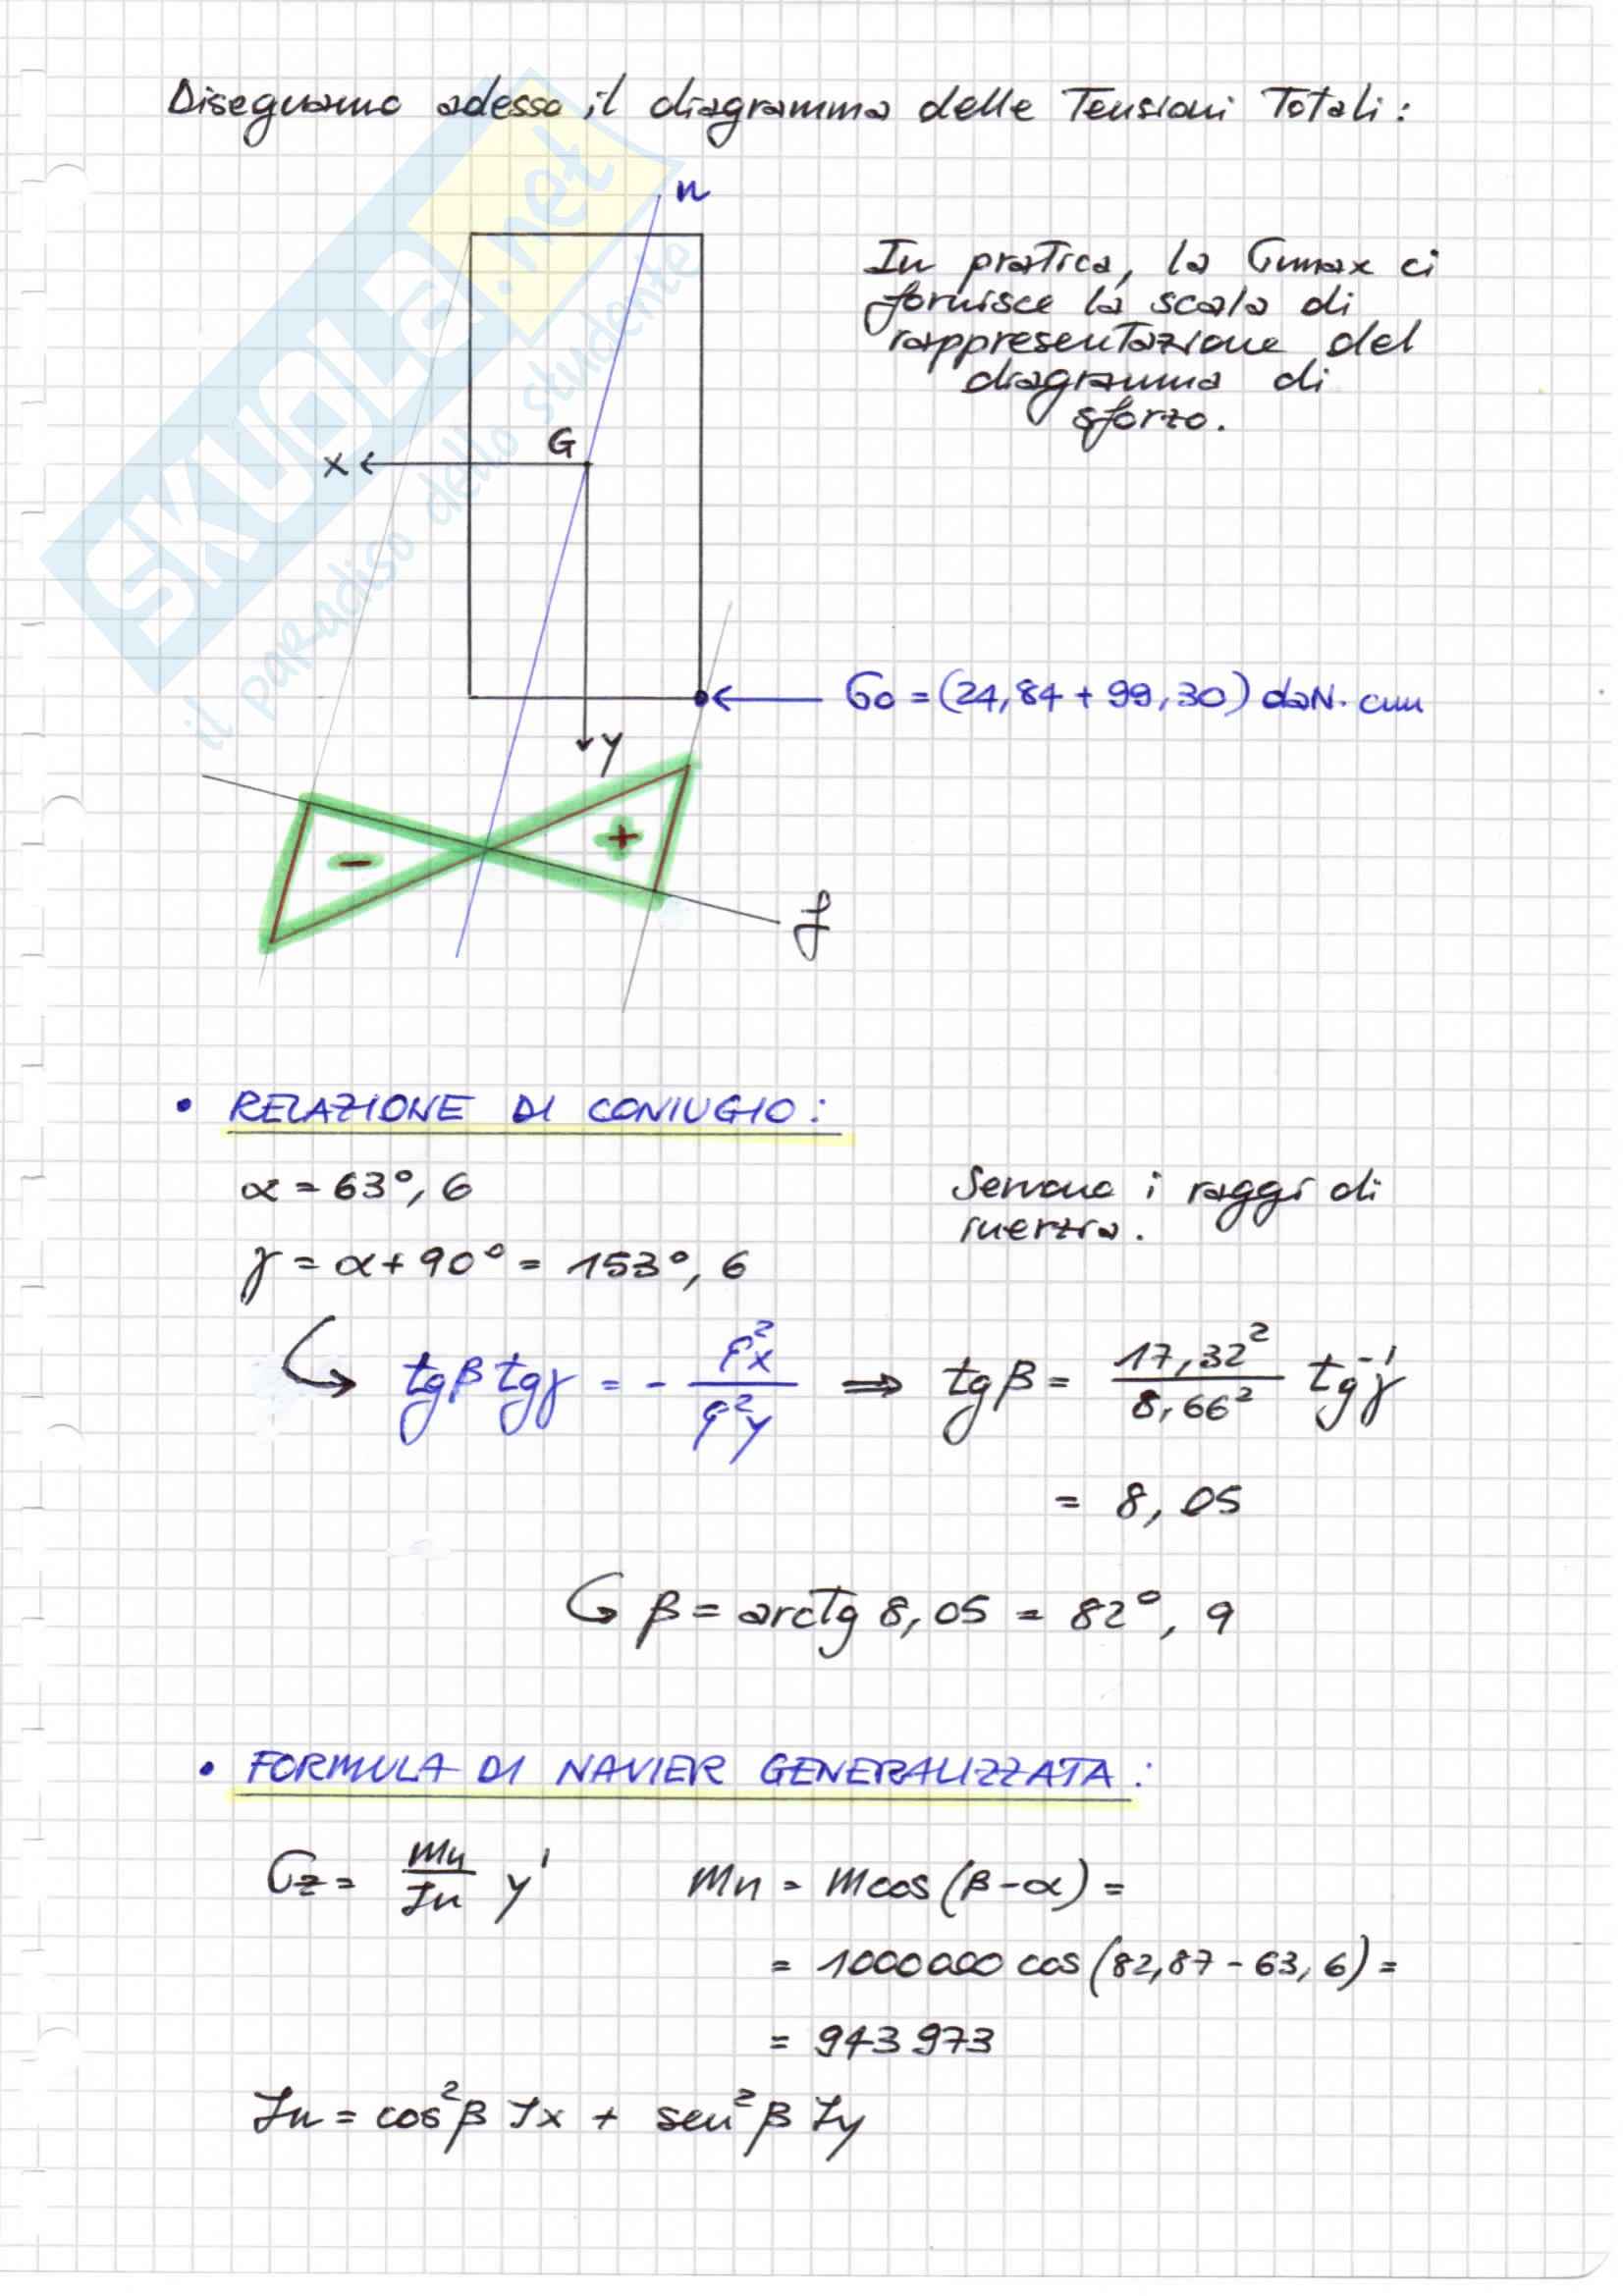 Disegnamo adesso il diagramma delle Tensioni Totali:
n
In pratica, la σmax ci
fornisce la scala di
rappresentazione del
diagramma di
sforzo.
G
x
σo = (24,84 + 99,30) daN·cm
y
- +
f
SKUOLA.net
il paradiso dello studente
• RELAZIONE DI CONIUGIO:
α = 63°,6
Servono i raggi di
inerzia.
γ = α + 90° = 153°,6
tgβ tgγ = - ρ²x / ρ²y ⇒ tgβ = 17,32² / 8,66² tg⁻¹γ
= 8,05
β = arctg 8,05 = 82°,9
• FORMULA DI NAVIER GENERALIZZATA:
σz = Mn / Jn y' Mn = M cos (β-α) =
= 1000000 cos (82,87 - 63,6) =
= 943973
Jn = cos²β Jx + sen²β Jy